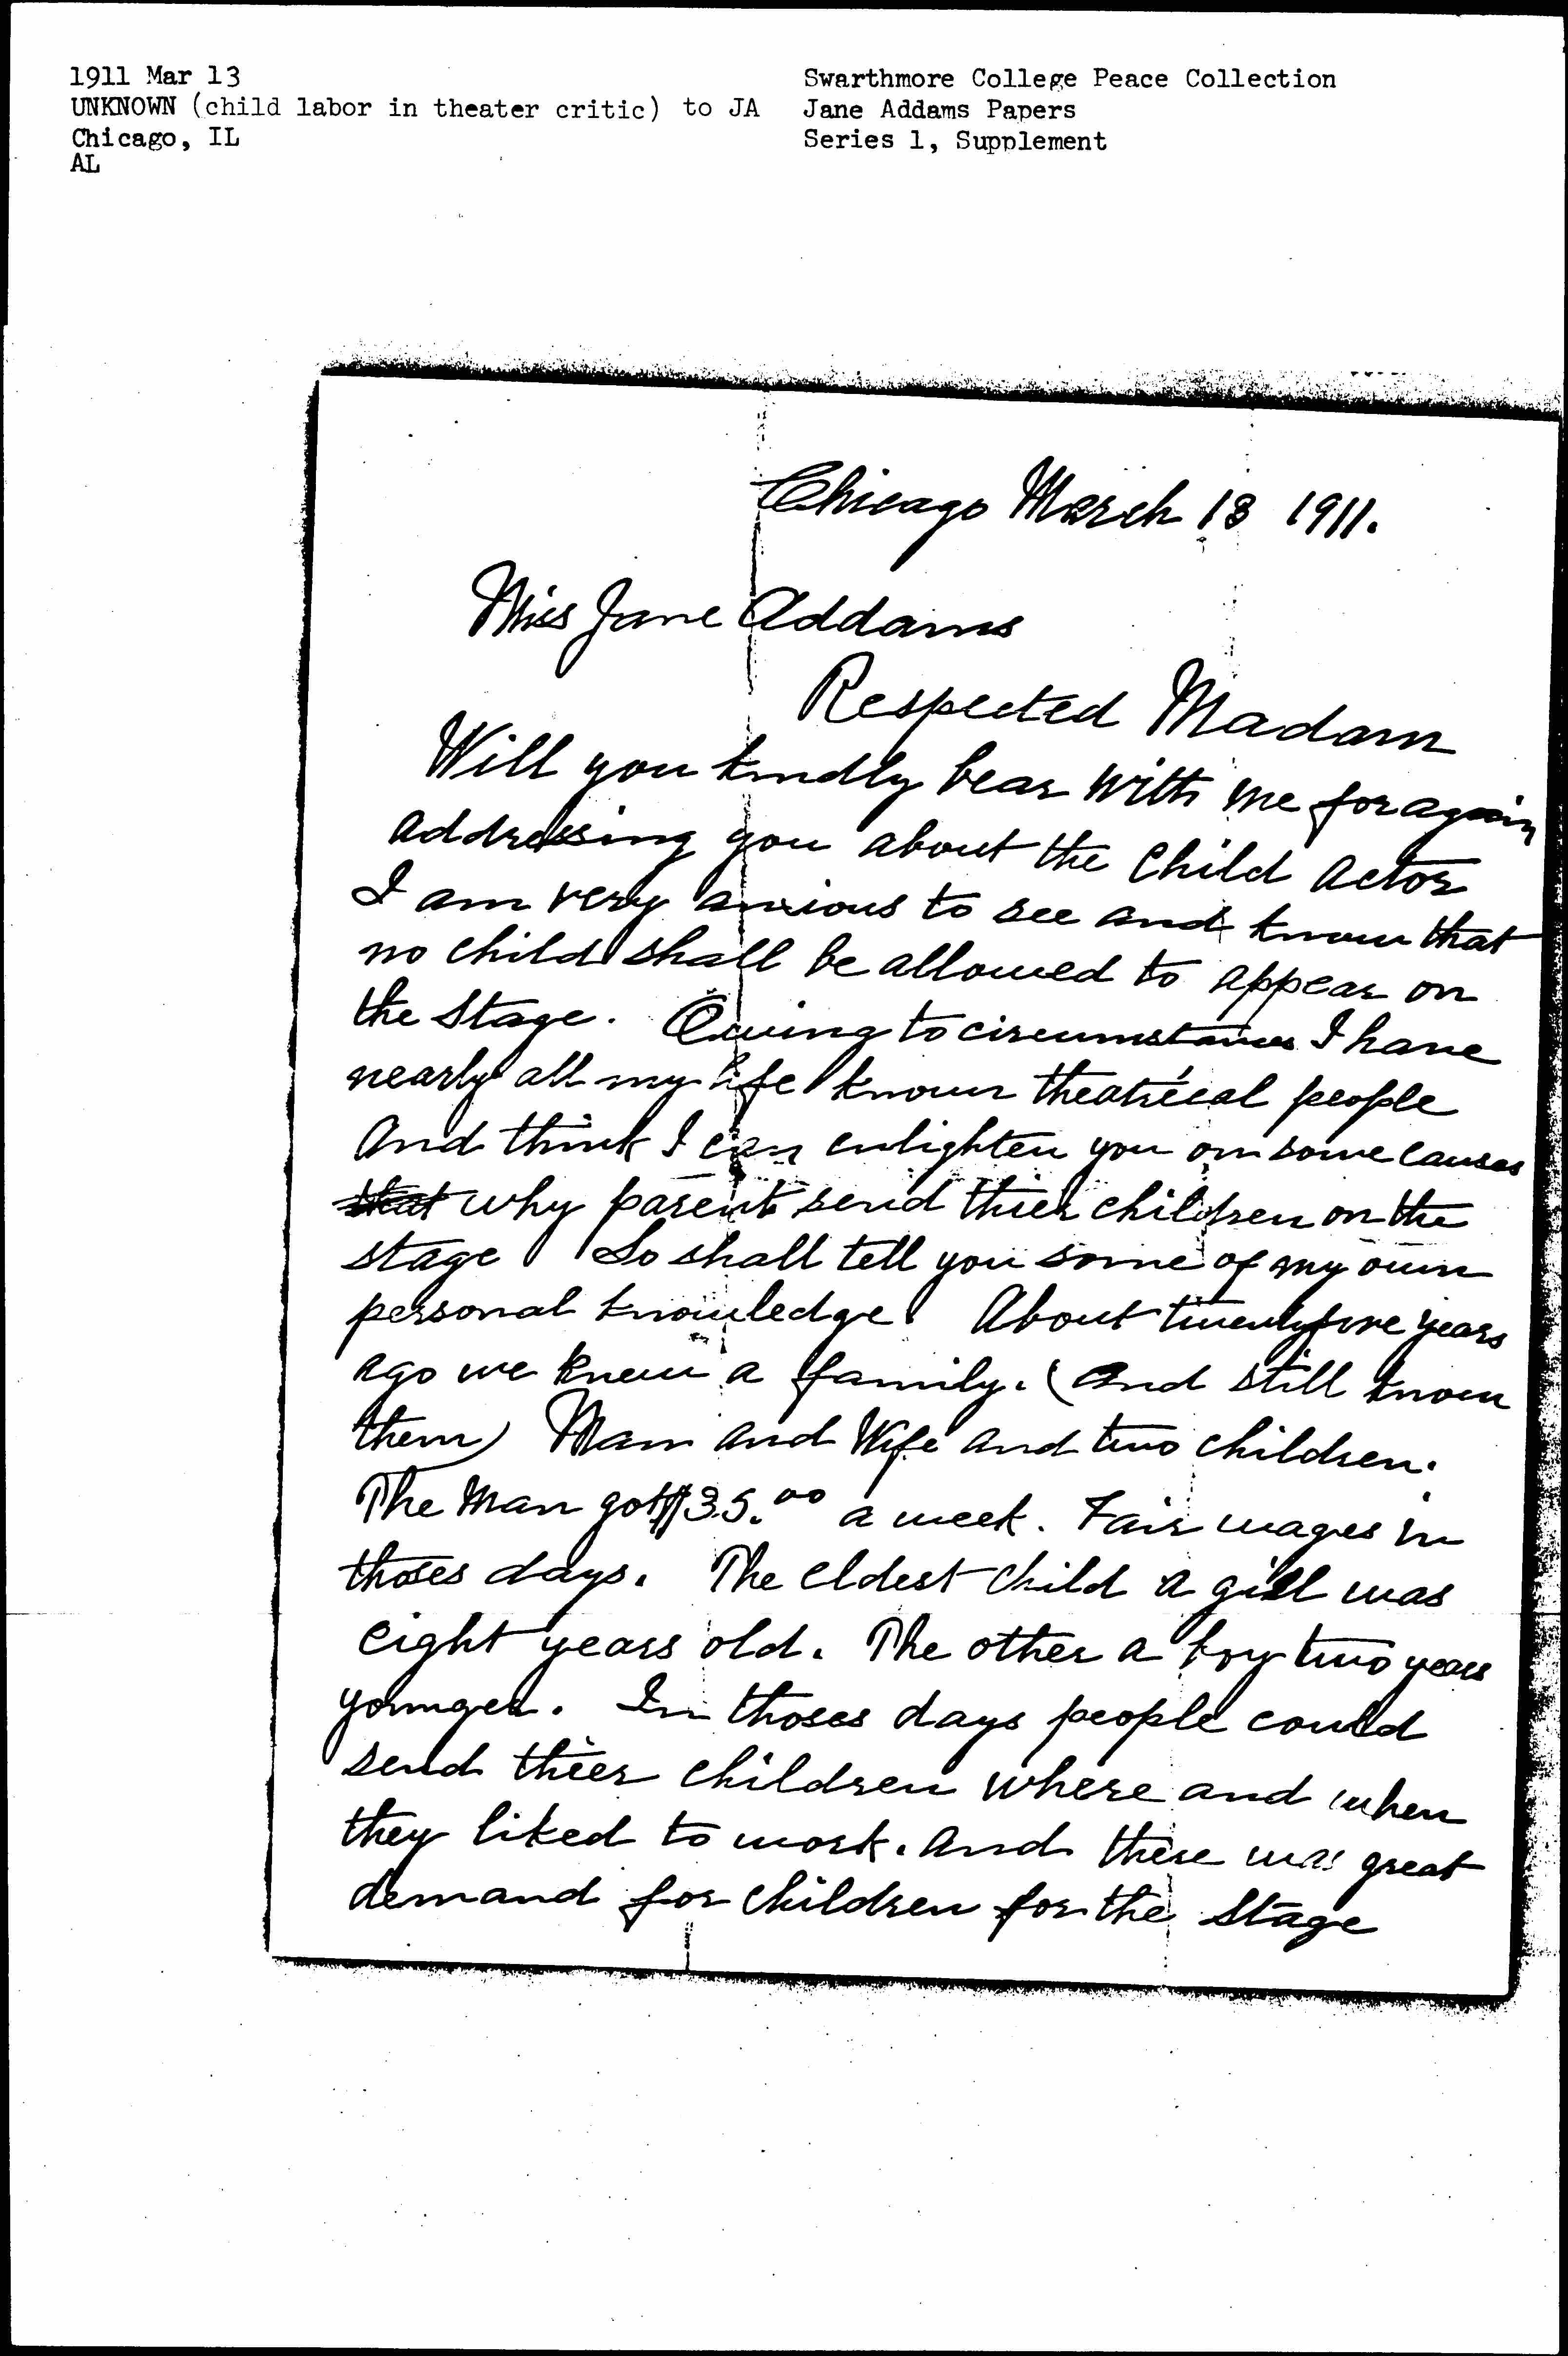 1911 Mar 13
UNKNOWN (child labor in theater critic) to JA
Chicago, IL
AL
Swarthmore College Peace Collection
Jane Addams Papers
Series 1, Supplement
Chicago March 13 1911.
Miss Jane Addams
Respected Madam
Will you kindly bear with me for again
addressing you about the Child Actor
I am very anxious to see and know that
no child shall be allowed to appear on
the Stage. Owing to circumstances I have
nearly all my life known theatrical people
And think I can enlighten you on some causes
that why parents send thier children on the
stage So shall tell you some of my own
personal knowledge. About twentyfive years
ago we knew a family. (and still know
them) Man and Wife and two children.
The Man got $35.00 a week. Fair wages in
thoses days. The eldest child a girl was
eight years old. The other a boy two years
younger. In thoses days people could
send thier children where and when
they liked to work. and there was great
demand for children for the Stage